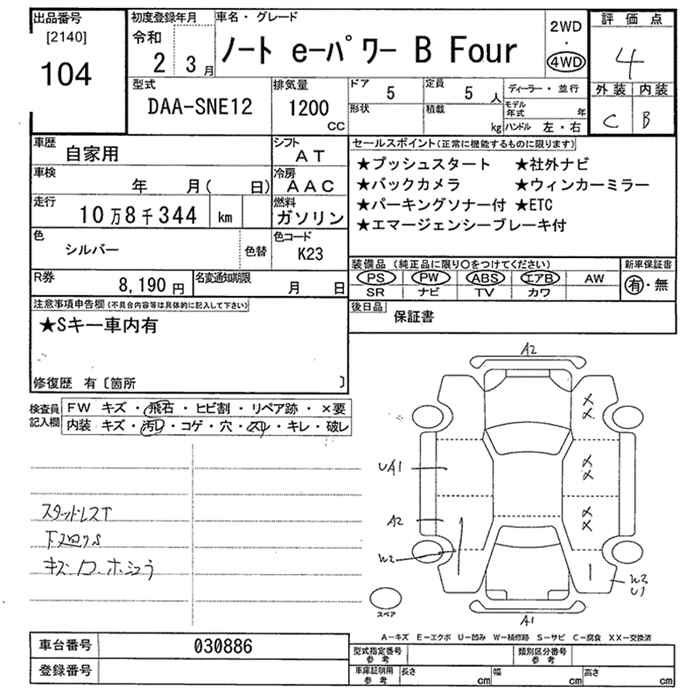 出品番号
[2140]
104
初度登録年月
令和
2 3月
車名・グレード
ノート eーパワー B Four
2WD
・
4WD
評価点
4
外装 内装
C B
型式
DAA-SNE12
排気量
1200
CC
ドア
5
定員
5 人
形状
積載
kg
ディーラー・並行
モデル年式 年
ハンドル 左・右
車歴
自家用
シフト
AT
車検
年 月( 日)
冷房
AAC
走行
10万8千344 km
燃料
ガソリン
色
シルバー
色替
色コード
K23
R券
8,190円
名変通知期限
月 日
セールスポイント(正常に機能するものに限ります)
★プッシュスタート ★社外ナビ
★バックカメラ ★ウィンカーミラー
★パーキングソナー付 ★ETC
★エマージェンシーブレーキ付
装備品(純正品に限り○をつけてください)
PS PW ABS エアB AW
SR ナビ TV カワ
新車保証書
有・無
後日品
保証書
注意事項申告欄(不具合内容等は具体的に記入して下さい)
★Sキー車内有
修復歴 有〔箇所 〕
検査員記入欄
FW キズ・飛石・ヒビ割・リペア跡・×要
内装 キズ・汚レ・コゲ・穴・スレ・キレ・破レ
スタッドレスT
下廻りS
A2
UA1
A2
W2
W2
U1
A1
スペア
A−キズ E−エクボ U−凹み W−補修跡 S−サビ C−腐食 XX−交換済
車台番号
030886
登録番号
型式指定番号
参考
類別区分番号
参考
車庫証明用
参考
長さ cm
幅 cm
高さ cm